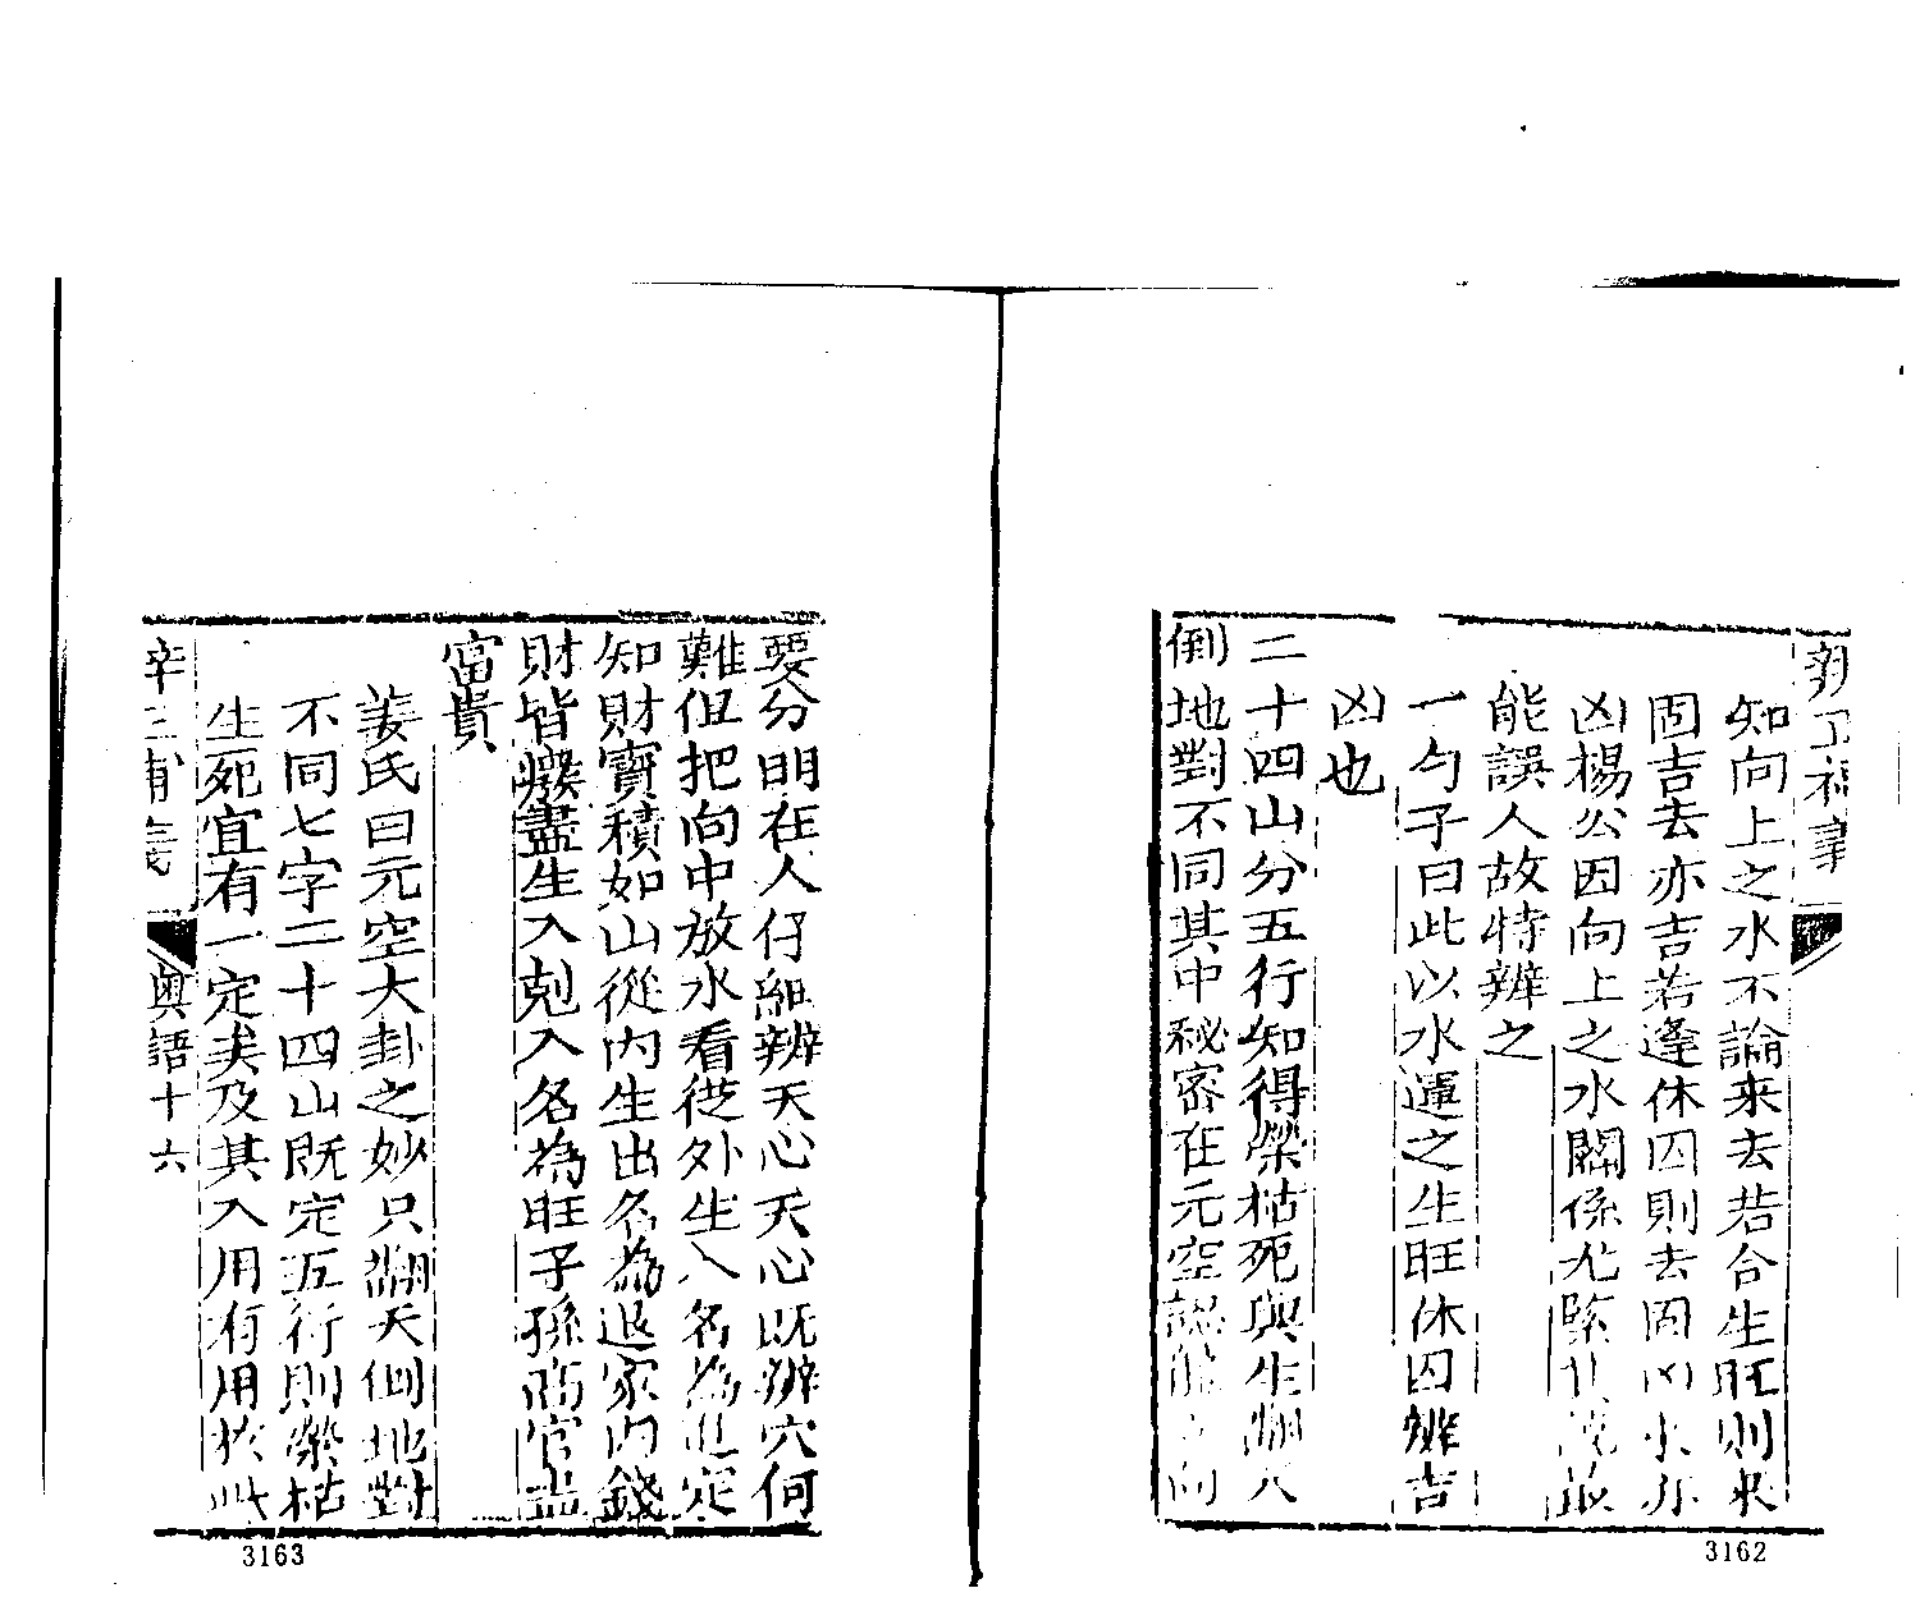 知向上之水不論来去若合生旺則来
固吉去亦吉若逢休囚則去固凶来亦
凶楊公因向上之水關係尤緊
能誤人故特辨之
一勺子曰此以水運之生旺休囚辨吉
凶也
二十四山分五行知得榮枯死與生翻天
倒地對不同其中秘密在元空認龍立向
3162
要分明在人仔細辨天心天心既辨穴何
難但把向中放水看從外生入名為進定
知財寶積如山從内生出名為退家内錢
財皆廢盡生入剋入名為旺子孫高官盡
富貴
姜氏曰元空大卦之妙只翻天倒地對
不同七字二十四山既定五行則榮枯
生死宜有一定矣及其入用有用於此
奥語十六
3163